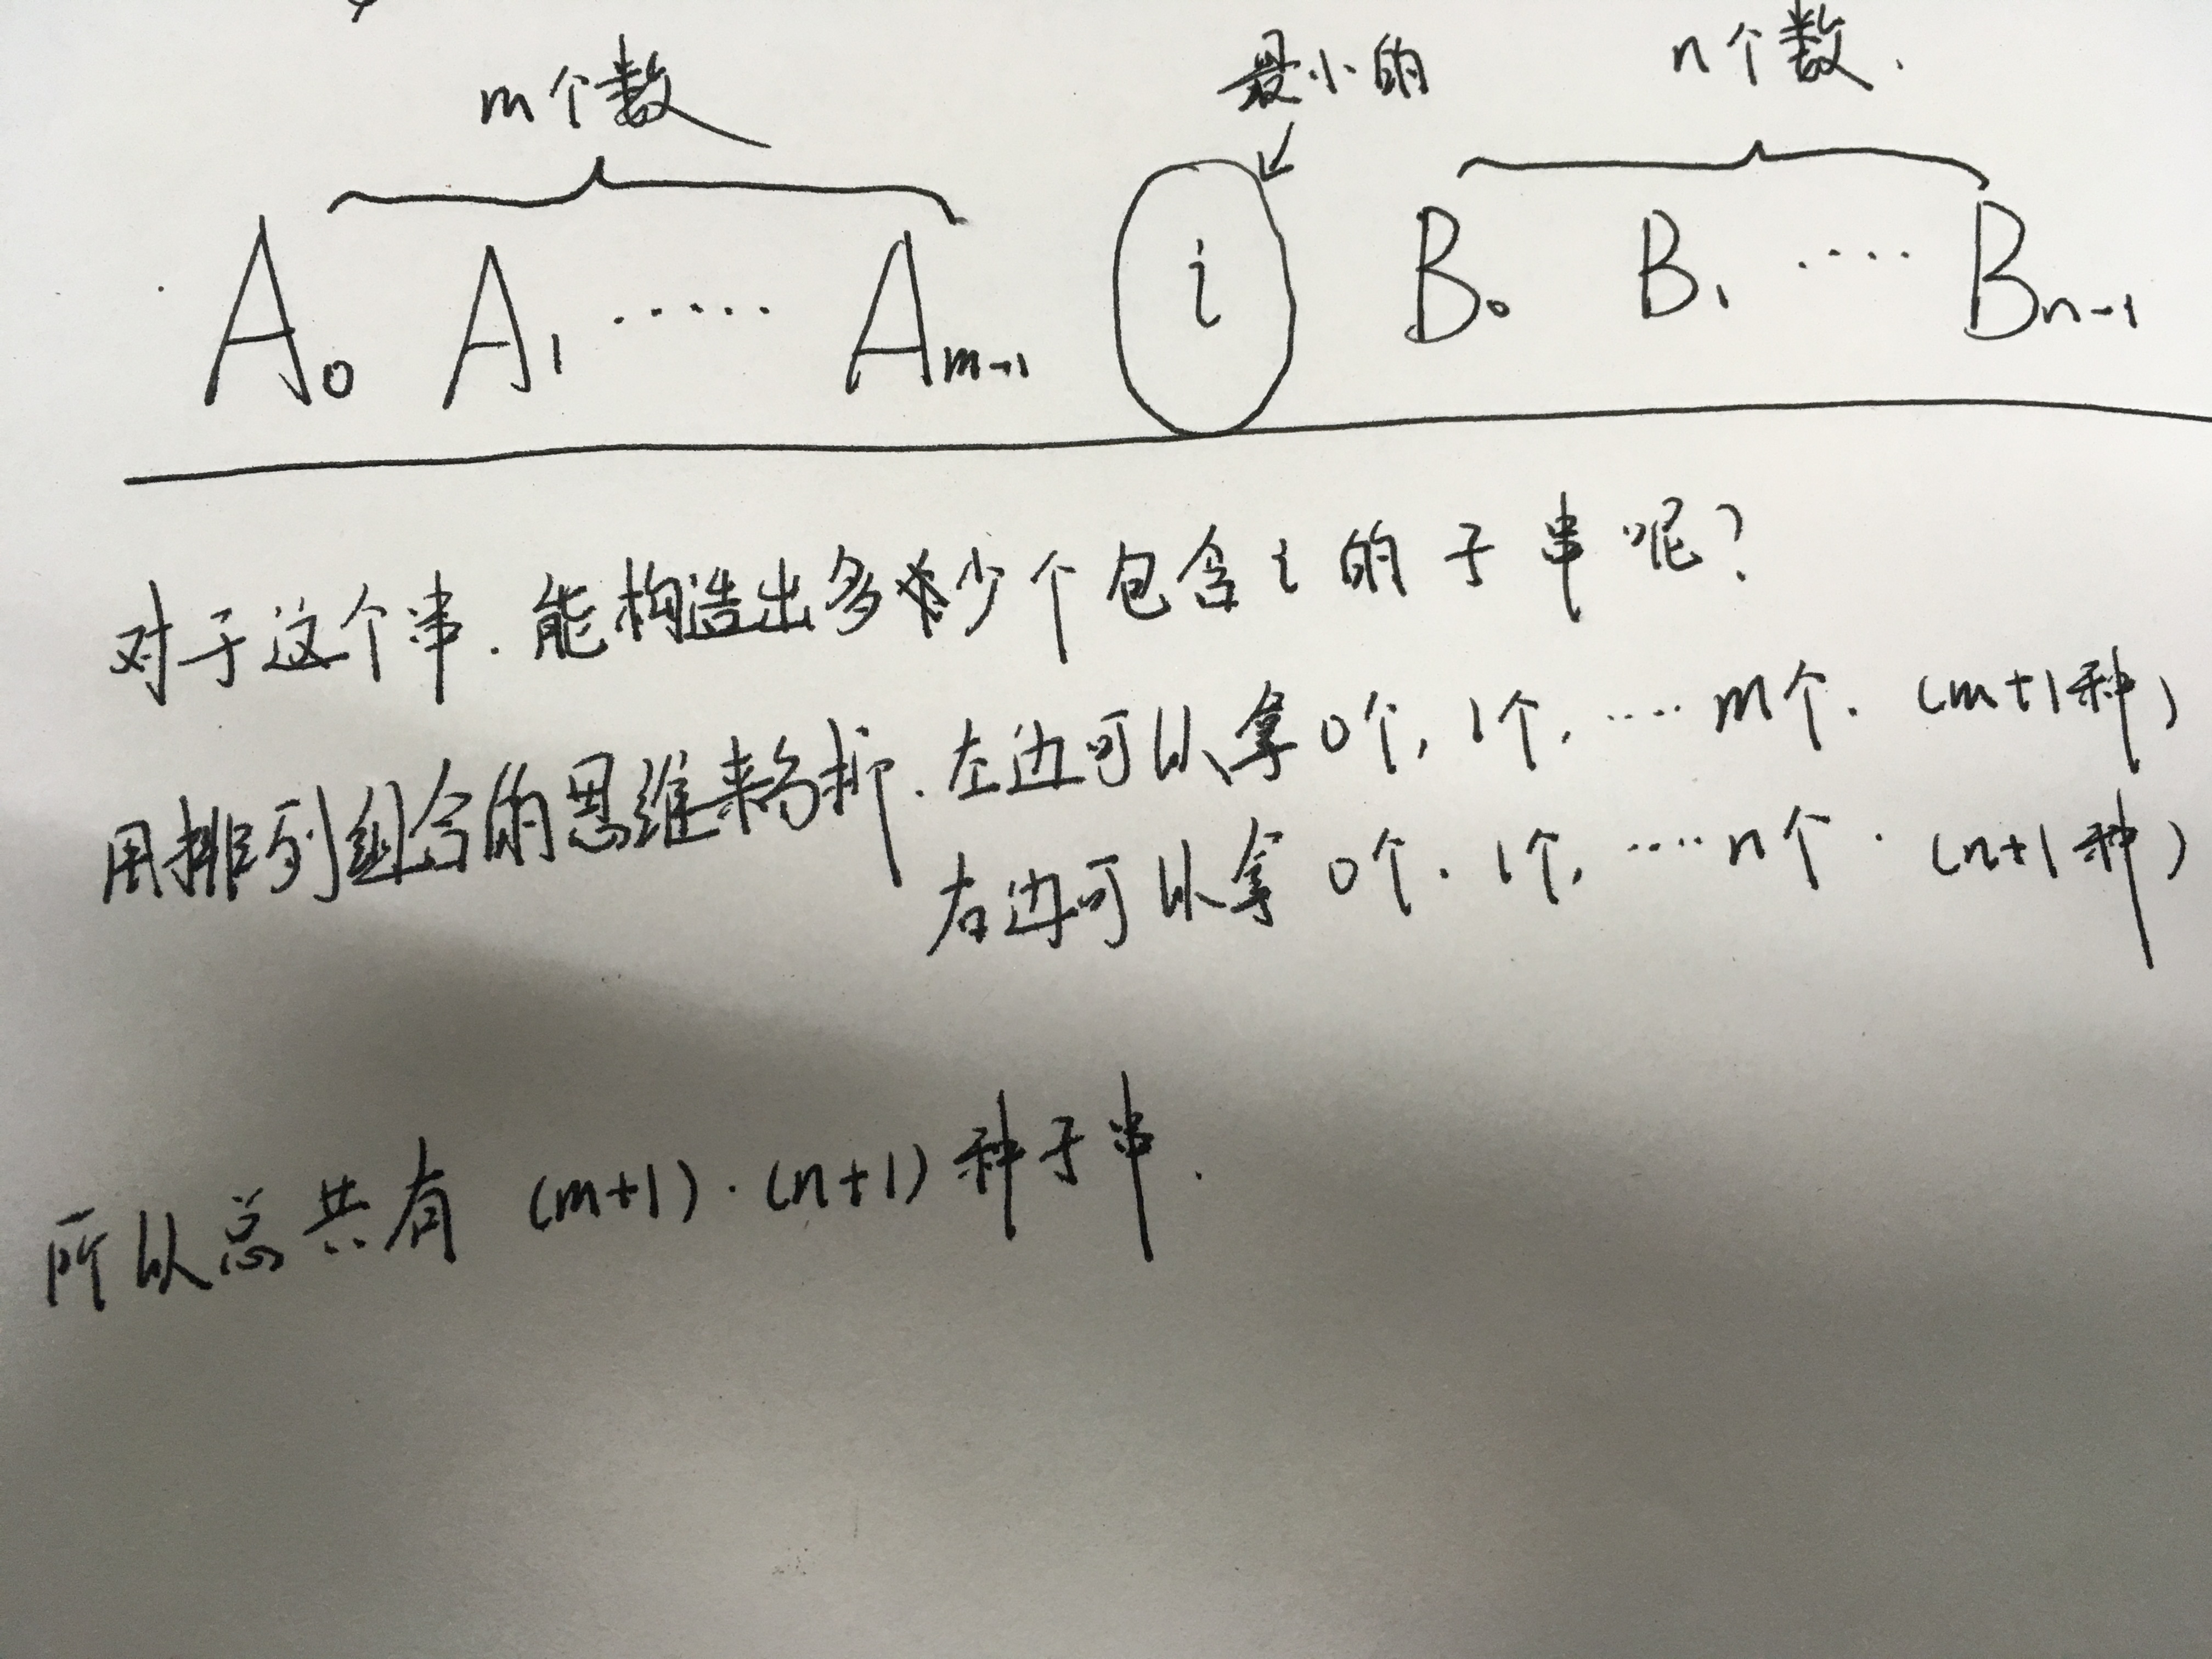 m个数 最小的 n个数.
A0 A1 ···· Am-1 i B0 B1 ···· Bn-1
对于这个串.能构造出多少个包含i的子串呢?
用排列组合的思维来分析.左边可以拿0个,1个.····m个.(m+1种)
右边可以拿0个.1个.····n个.(n+1种)
所以总共有 (m+1)·(n+1)种子串.